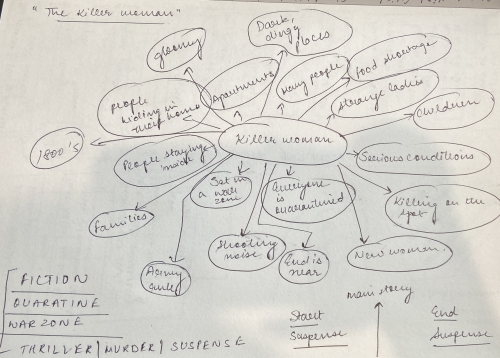 "The Killer woman"
Dark,
dingy
places
gloomy
Apartments
Many people
food shortage
strange ladies
children
people
hiding in
their homes
1800's
Killer woman
People staying
inside
Serious conditions
Set in
a war
zone
Everyone
is
quarantined
Killing on the
spot
Families
Shooting
noise
End is
near
New woman
Army
only
main story
FICTION
QUARATINE
WAR ZONE
THRILLER / MURDER / SUSPENSE
Start
Suspense
End
Suspense